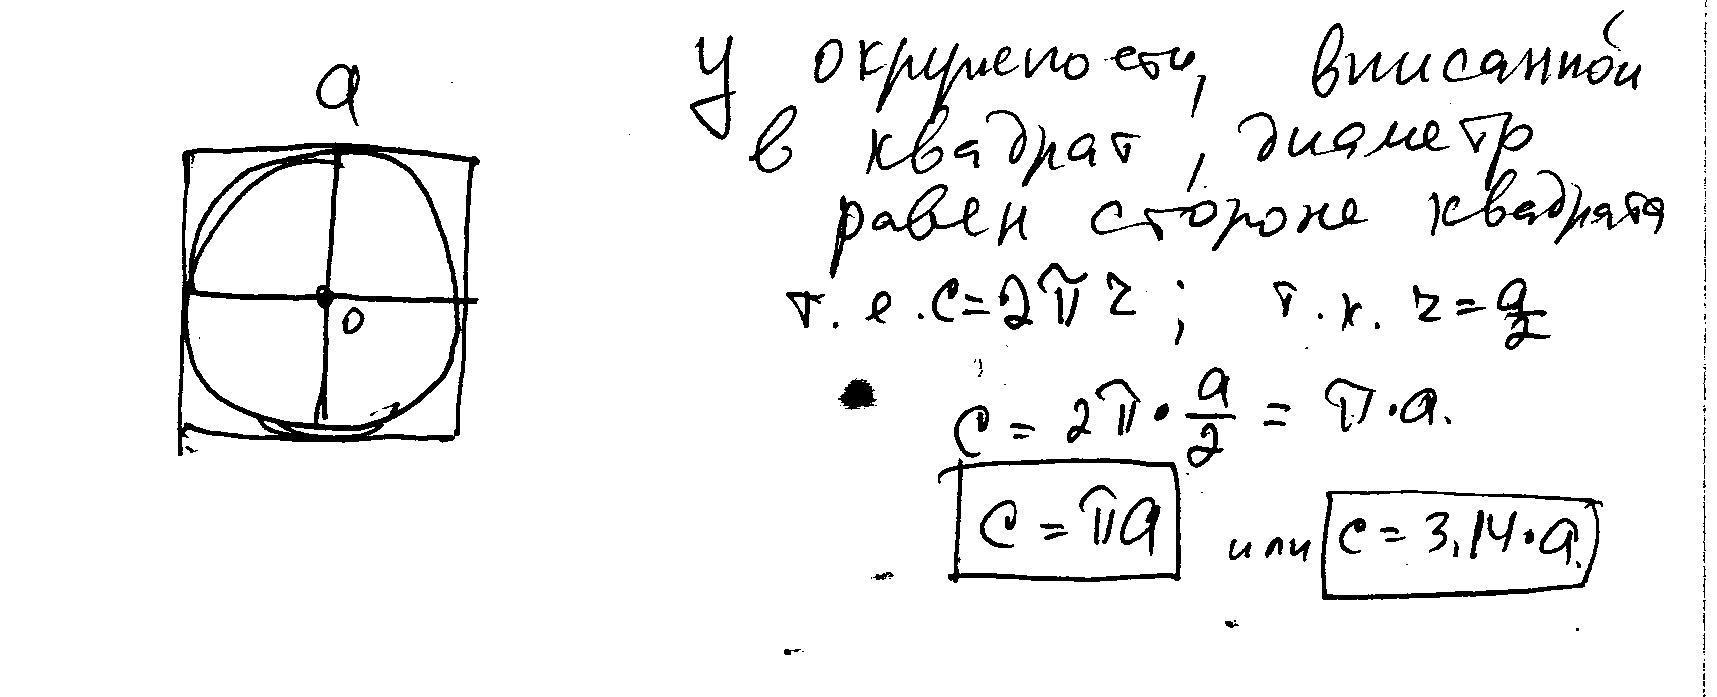 a
O
У окружности, вписанной
в квадрат, диаметр
равен стороне квадрата
т.е. c=2πr; т.к. r=a/2
c = 2π·a/2 = π·a.
c = πa или c = 3,14·a.